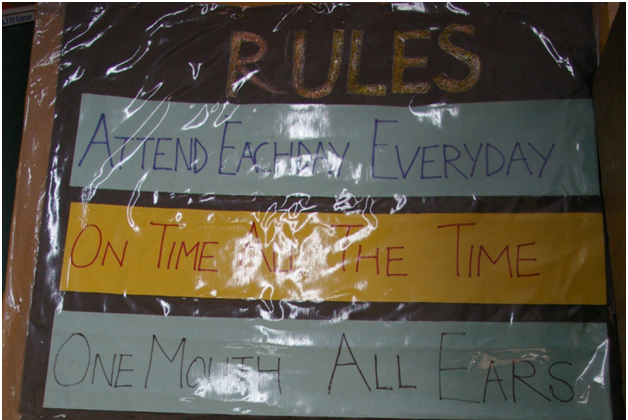 RULES
ATTEND EACHDAY EVERYDAY
ON TIME ALL THE TIME
ONE MOUTH ALL EARS